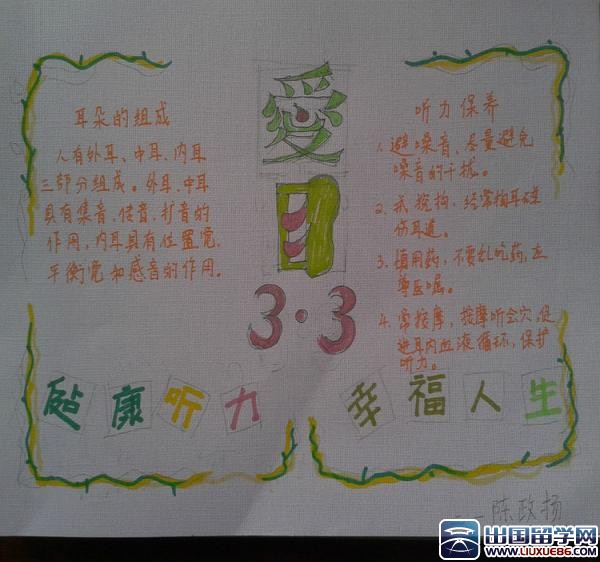 耳朵的组成
人有外耳、中耳、内耳
三部分组成。外耳、中耳
具有集音、传音、扩音的
作用，内耳具有位置觉、
平衡觉和感音的作用。
愛
耳
3·3
听力保养
1. 避噪音，尽量避免
噪音的干扰。
2. 戒挖掏，经常掏耳碰
伤耳道。
3. 慎用药，不要乱吃药，应
尊医嘱。
4. 常按摩，按摩听会穴，促
进耳内血液循环，保护
听力。
康听力
幸福人生
——陈政扬
出国留学网
WWW.LIUXUE86.COM